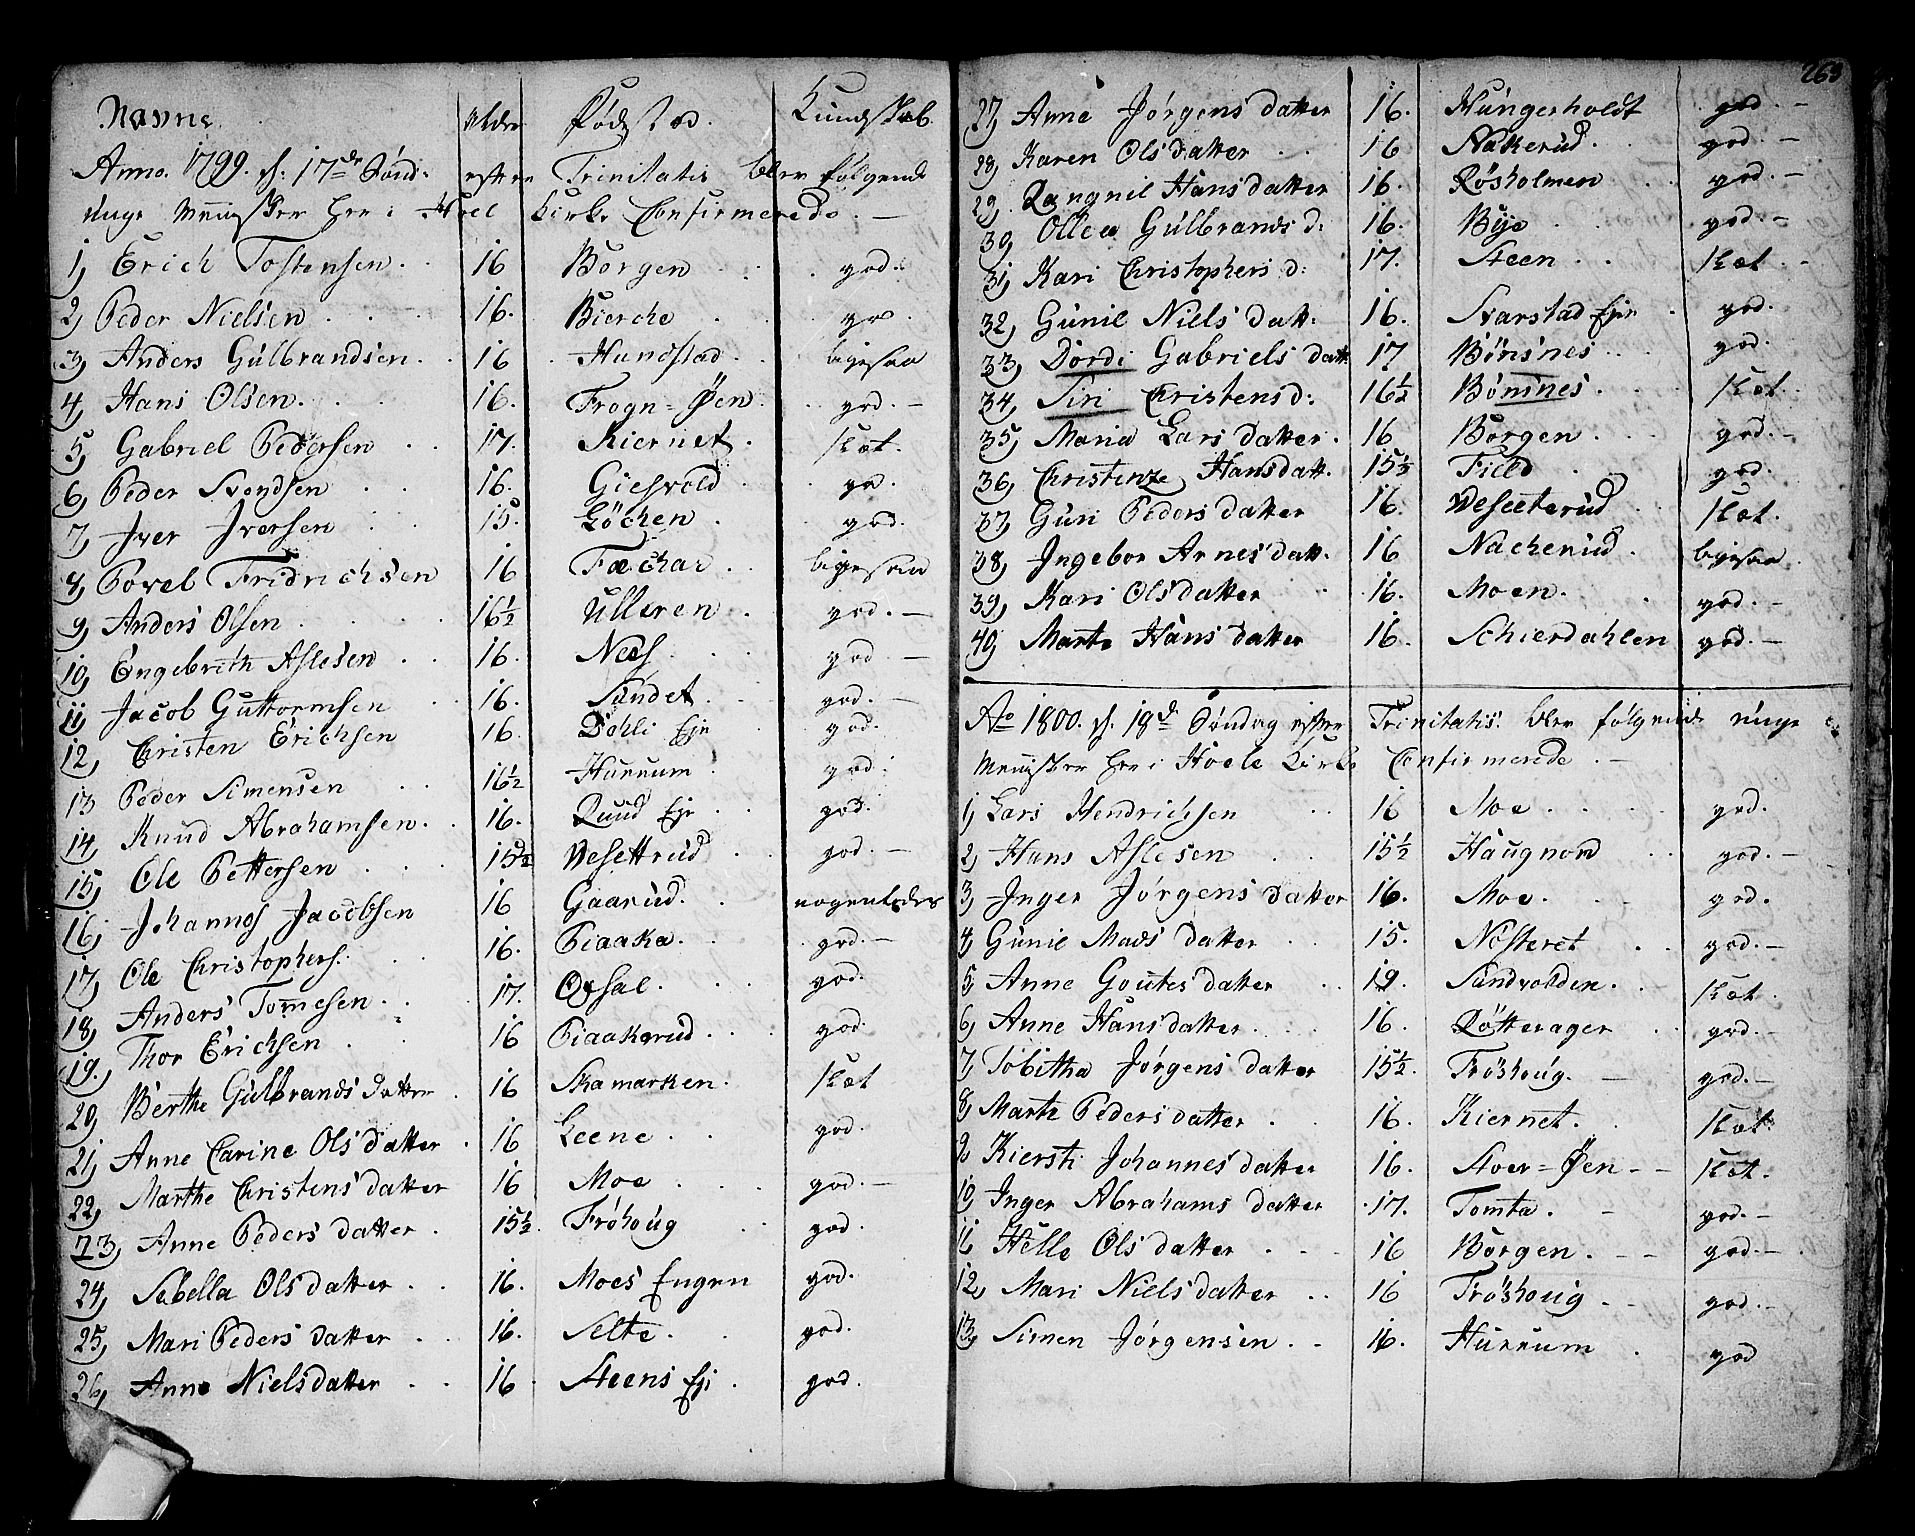 Navne. Alder Fødested. Kundskab.
Anno. 1799. d. 17de Sønd: efter Trinitatis blev følgende
unge Mennisker her i Hoel Kirke Confirmerede. —
1, Erich Tostensen. 16 Borgen god.
2, Peder Nielsen 16. Bierche god
3, Anders Gulbrandsen. 16 Hundstad ligesaa
4, Hans Olsen. 16. Frogn=Øen. god. —
5, Gabriel Pedersen 17. Kiernet. slæt.
6, Peder Svendsen 16. Giesvold god.
7, Iver Iversen 15. Løchen god.
8, Povel Fridrichsen 16 Fæchar ligesaa
9, Anders Olsen 16½ Ulleren god. —
10, Engebrith Aslesen 16. Næss god —
11, Jacob Guttormsen 16. Sundet. god. —
12, Christen Erichsen 16. Dohli Eje god.
13 Peder Simensen 16½ Hurrum god.
14, Knud Abrahamsen. 16. Ruud Eje god.
15, Ole Pettersen 15½ Vesettrud god. —
16, Johannes Jacobsen 16 Gaarud. nogenledes
17, Ole Christophers. 16. Piaaka. god. —
18, Anders Tomesen. 17. Opsal. god.
19. Thor Erichsen 16 Piaakerud. god.
20, Berthe Gulbrands datter 16 Skamarken. slæt
21, Anne Carine Ols datter 16 Leene. god.
22, Marthe Christens datter 16 Moe god. —
23, Anne Peders datter. 15½. Frøhoug god.
24, Sebella Ols datter 16. Moes Engen god.
25, Mari Peders datter 16. Selte. god.
26, Anne Nielsdatter 16 Steens Eji god.
263
27, Anne Jørgens datter 16. Hungerholdt god. —
28, Karen Olsdatter 16 Nakerud. god. —
29, Rangnil Hans datter 16. Røsholmen god. —
30, Ollea Gulbrands d: 16. Bye god. —
31, Kari Christophers d: 17. Steen slæt. —
32, Gunil Niels datt. 16. Svarstad Eje god.
33, Dordi Gabriels datt 17 Bønsnes god.
34, Siri Christens d: 16½ Bønsnes. slæt.
35, Maria Lars datter. 16 Borgen god. —
36, Christenze Hansdatt. 15½ Field god.
37, Guri Peders datter 16. Veseterud slæt.
38, Ingebor Arnes datt. 16 Nacherud. ligesaa
39, Kari Ols datter 16. Moen. god. —
40, Marte Hans datter 16. Schierdahlen god. —
Ao 1800. d. 18de Søndag efter Trinitatis. blev følgende unge
Mennisker her i Hoele Kirke Confirmerede. —
1, Lars Hendrichsen 16 Moe god.
2, Hans Aslesen 15½ Haugnord god. —
3, Inger Jørgens datter 16. Moe. god.
4, Gunil Mads datter 15. Nosteret god. —
5, Anne Goutes datter 19. Sundvolden. slæt.
6, Anne Hans datter. 16. Røtterager god. —
7, Tobitha Jørgens datter 15½. Frøshoug. god. —
8, Marte Peders datter 16. Kiernet. slæt.
9, Kiersti Johannes datter 16. Stoer=Øen slæt.
10, Inger Abrahams datter 17. Tomta. god. —
11, Helle Ols datter 16 Borgen. god. —
12, Mari Niels datter 16 Frøshoug god. —
13, Simen Jørgensen 16. Hurrum god